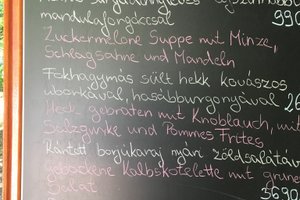 mandulaforgáccsal 990
Zuckermelone Suppe mit Minze,
Schlagsahne und Mandeln
Fokhagymás sült hekk kovászos
uborkával, hasábburgonyával 26
Hecht gebraten mit Knoblauch, mit
Salzgurke und Pommes Frites
Rántott borjúkaraj nyári zöldsalátával
gebackene Kalbskotelette mit grünen
Salat 3690